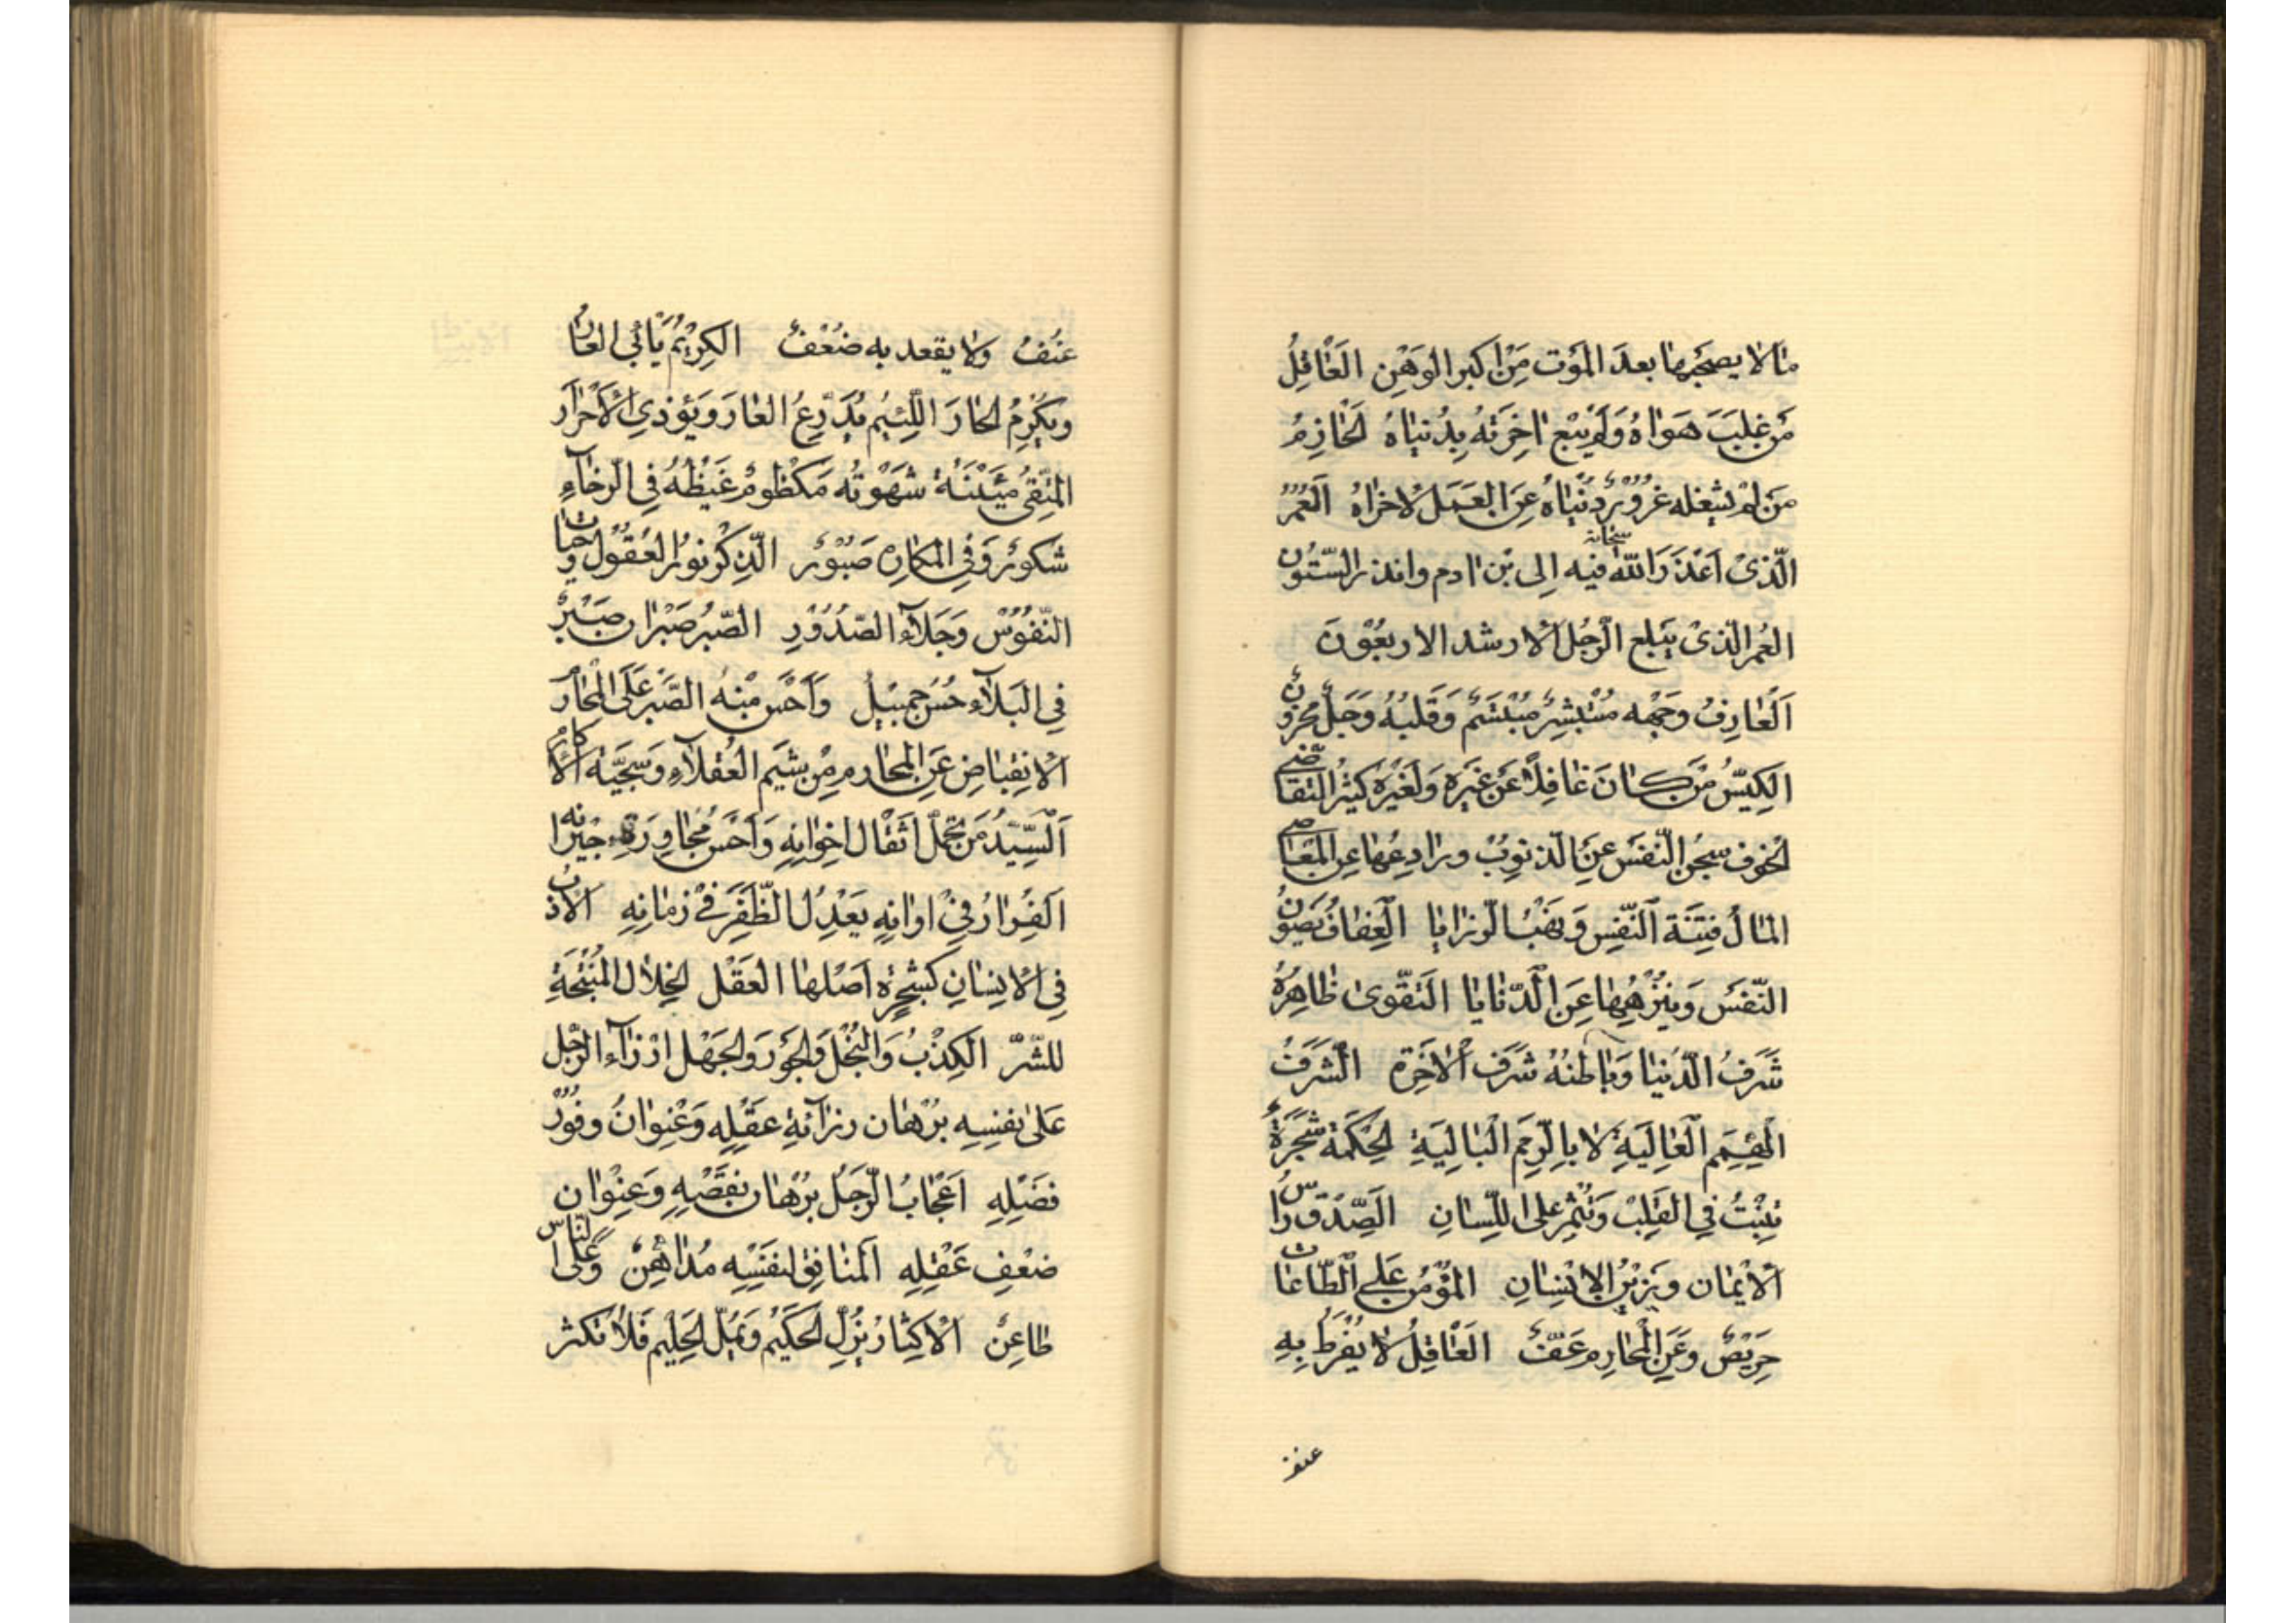 مَالا يصحبها بعدَ المَوت مِنْ اكبر الوَهْنِ العَاقِلُ
مَن غلبَ هَوَاهُ وَلَم يَبْع اخِرَتهُ بِدُنياهُ الحَازِمُ
مَن لم يشغله غرُوْر دُنْيَاهُ عِنَ العَمَل لاخراهُ العُمُرُ
الّذى اَعْذَرَ اللّه سبحانه فيه الى بْن ادم وانذر السّتُون
العُمر الّذى يَبلع الرّجُل الارشد الاربعُوْنَ
اَلعَارِفُ وَجهه مُسْتبشِرٌ مُبْتسَمٌ وَقَلبُهُ وَجَلٌ محزونٌ
الكِيّسُ مَن كَانَ غافِلاً عَن غيَره وَلَغيْره كثيْرُ التقاضى
الخوف سجْنُ النّفسَ عَنِ الذنوِبُ ورادِعُها عِن المَعَاصى
المَال فِتنَة النّفسِ وَنهْبُ الرّزايا العِفافُ يَصوِنُ
النّفسَ وَينزّهِها عِنَ الدّنايا التقّوى ظاهِرهُ
شَرَفُ الدّنيا وَبَاطنهُ شَرَف الاخِرَة الشرَفُ
الهِمَم العَالِيَةِ لا بالرّمِم البَالِيَةِ الحِكمَة شجَرَةٌ
تنبْتُ فِي القَلِبْ وَتُثْمِر على اللِّسانِ الصِّدْق راسُ
الايْمَان وَيَزيْن الاِنْسَانِ المؤْمُن عَلى الطّاعَات
حِريَصٌ وعَنِ المحَارِم عَفّ العَاقِلُ لا يُفْرَط بِهِ
عنف
عَنُفٌ وَلا يقعد به ضُعْفٌ الكِريْمُ يَأبي العَار
وَيكْرِمُ الجارَ اللّئِيُم يُدّرِعُ العَارَ وَيؤذي الاَحْرَار
المتّقِى مَيّتَة شهْوَتُه مَكظومٌ غَيْظُهُ فِي الرّخآءِ
شكورٌ وَفِي المكارِه صَبُوْرٌ الذّكرُ نوُر العُقُوْل وحيات
النّفُوسْ وَجَلآء الصّدُوْرِ الصّبرُ صَبْرَان صَبْرٌ
فِي البَلآء حُسْن جمِيْلُ وَاَحْسَن مِنْهُ الصّبر عَلَى المحَارمْ
الانِقبَاض عَنِ المحَارم مِنْ شِيَم العُقلآءِ وَسجيّة الاكارم
اَلسّيّدُ مَن تحمّل اثقال اخِوانِهِ وَاَحْسَن مُجاوِرَة جيْرانه
الفِرارُ فِيْ اوانِهِ يَعْدِلُ الظّفَر فيْ زمَانِهِ الاذب
فِي الانِسَانِ كشجرةٍ اَصْلها العَقْل الخِلال المُنْتجَةِ
للشّرّ الكِذْبُ وَالبُخْل وَالجوْر وَالجَهْل ازرآء الرّجُل
عَلى نفسِهِ بُرْهَان رزآنَةِ عقْلِه وَعُنوانُ وفُوْرُ
فضَلِهِ اعجَابُ الرّجَلُ برُهَان نقصِهِ وَعنِوْان
ضعْفِ عَقلِهِ المنَافق لنفسِه مُدَاهِنٌ وعَلى النّاس
طاعِنٌ الاكثِار يُزلّ الحكيْم وَيمُلّ الحَلِيْم فلا تكثر